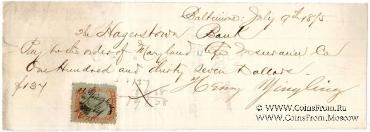 Baltimore, July 9th 1875
The Hagerstown Bank
Pay to the order of Maryland Life Insurance Co
One Hundred and thirty seven Dollars.
$137 Henry Yingling
www.CoinsFrom.Ru
CoinsFrom.Moscow